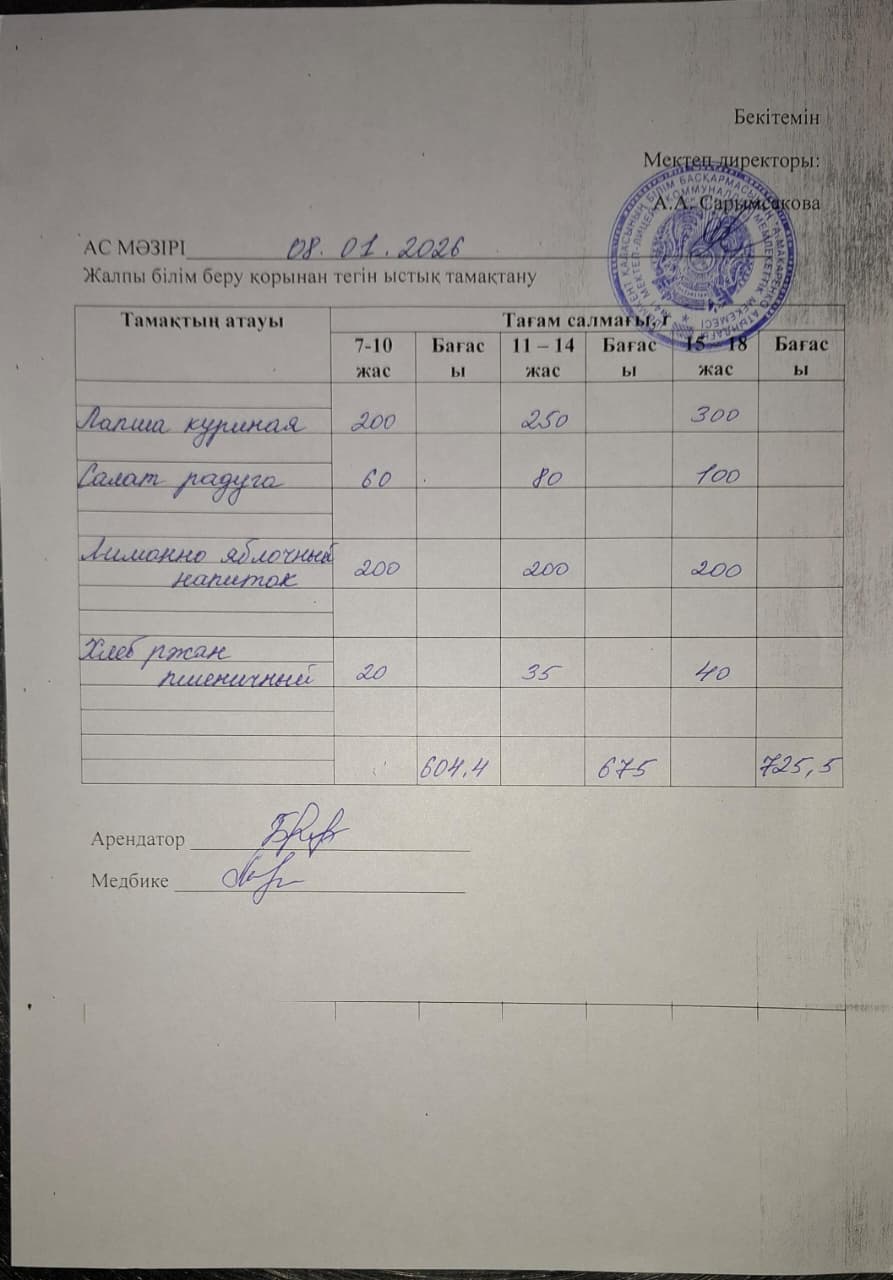 Бекітемін
Мектеп директоры:
А.А. Сарымсакова
АС МӘЗІРІ 08.01.2026
Жалпы білім беру қорынан тегін ыстық тамақтану
Тамақтың атауы Тағам салмағы, г
7-10 жас Бағасы 11 – 14 жас Бағасы 15 – 18 жас Бағасы
Лапша куриная 200 250 300
Салат радуга 60 80 100
Лимонно яблочный
напиток 200 200 200
Хлеб ржан
пшеничный 20 35 40
604,4 675 725,5
Арендатор
Медбике